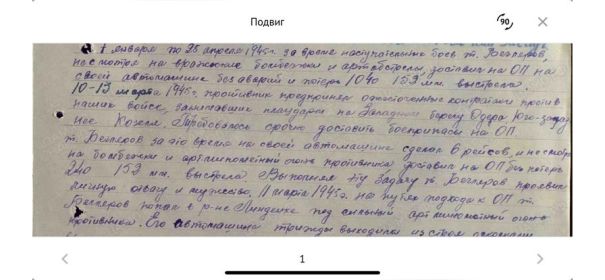 Подвиг
90
С 1 января по 25 апреля 1945 г. за время наступательных боев т. Бегляров,
несмотря на вражеские бомбежки и артобстрелы, доставил на ОП на
своей автомашине без аварий и потерь 1040 152 м.м. выстрела.
10-13 марта 1945 г. противник предпринял ожесточенные контратаки против
наших войск, занимавших плацдарм на Западном берегу Одера Юго-запад
нее Козель. Требовалось срочно доставить боеприпасы на ОП.
т. Бегляров за это время на своей автомашине сделал 8 рейсов, и несмотря
на бомбежки и артминометный огонь противника доставил на ОП без потерь
240 152 м.м. выстрела. Выполняя эту задачу т. Бегляров проявил
личную отвагу и мужество. 11 марта 1945 г. на путях подхода к ОП т.
Бегляров попал в р-не под сильный артминометный огонь
противника. Его автомашина трижды выходила из строя
1